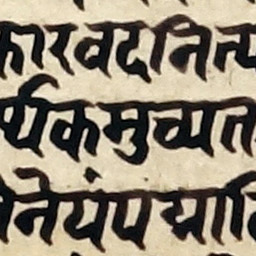 कारवदनित्य
र्थकमुच्यत
नेयंपद्मानि